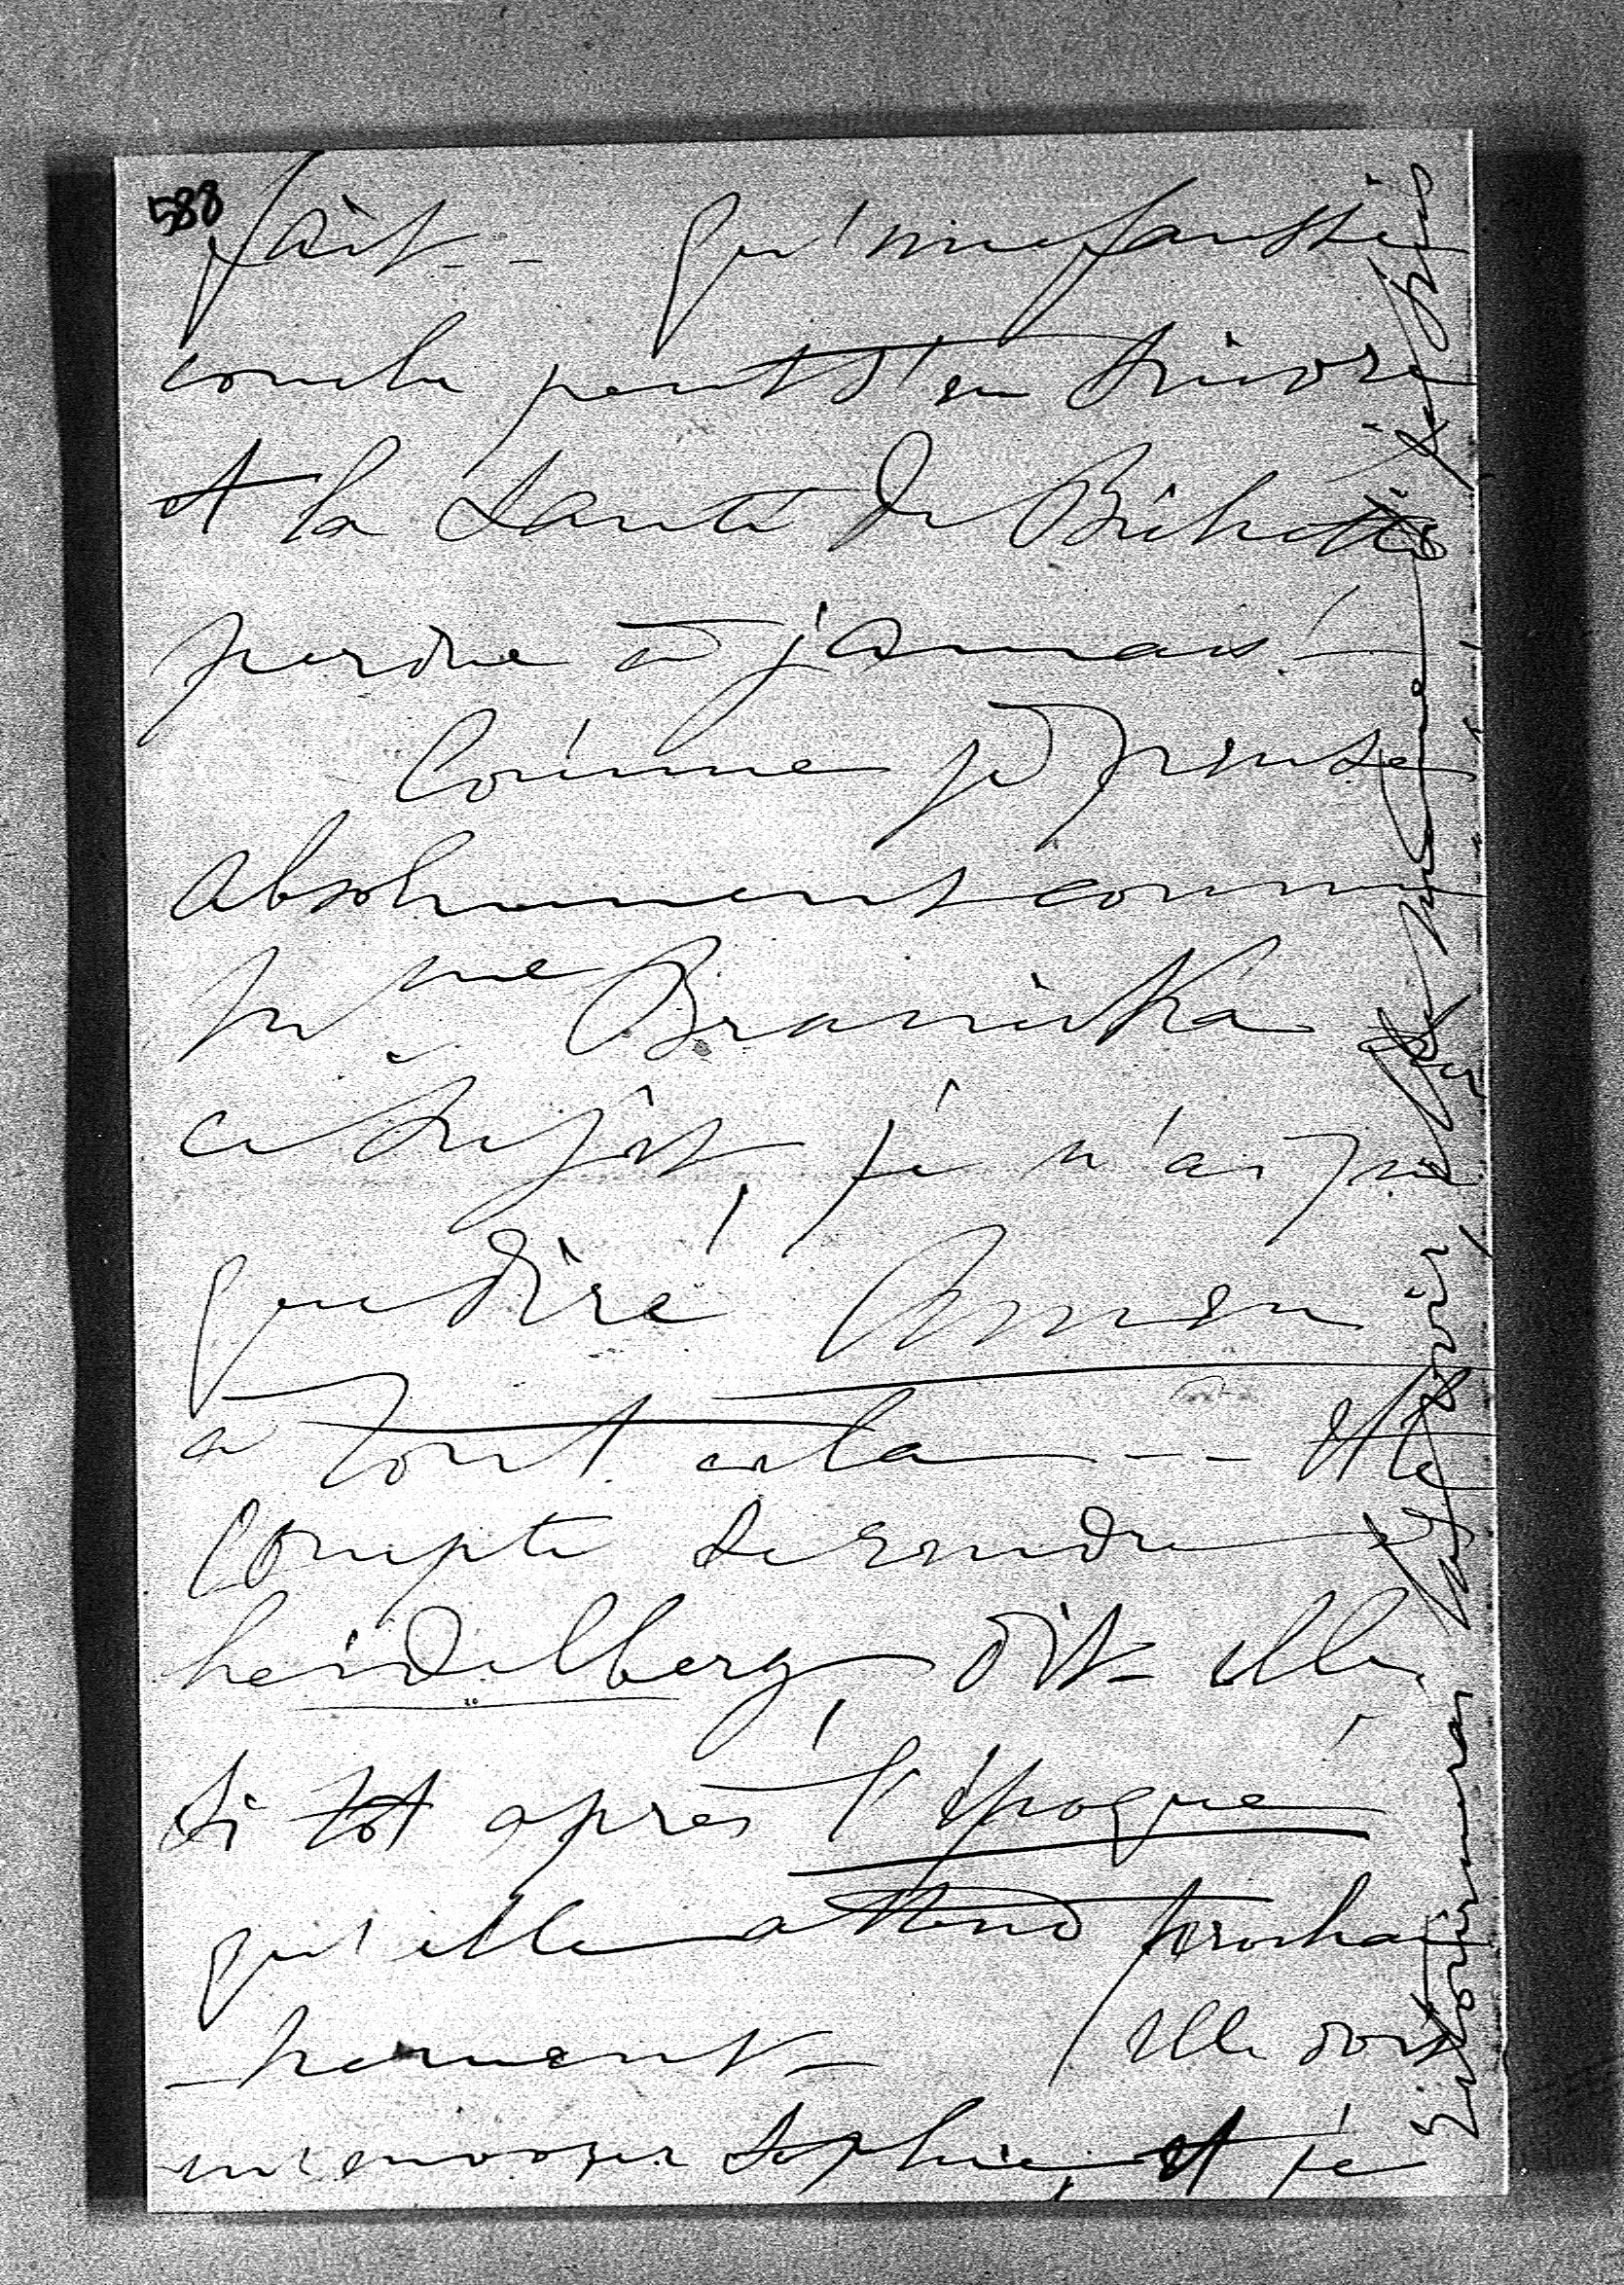 588
fait - - qu'une fausse
couche peut s'en suivre
et la santé de Bichette
perdue à jamais! -
Comme je pense
absolument comme
Mme Branicka
à ce sujet, je n'ai pu
que dire Amen
à tout cela - - - et elle
compte se rendre à
heidelberg, dit-elle,
si tot après l'époque
qu'elle attend prochai
- nement - Elle doit
m'envoyer Sophie, et je